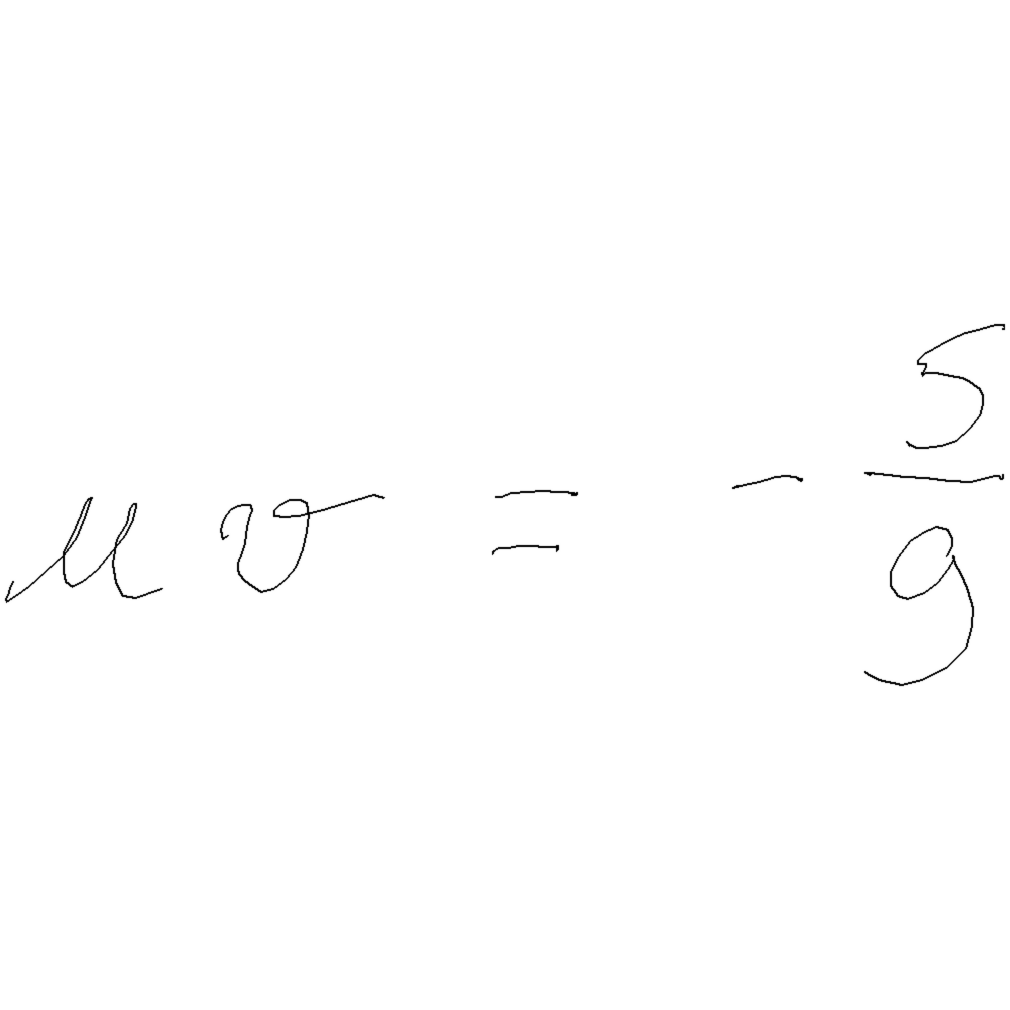 uv = -\frac{5}{9}